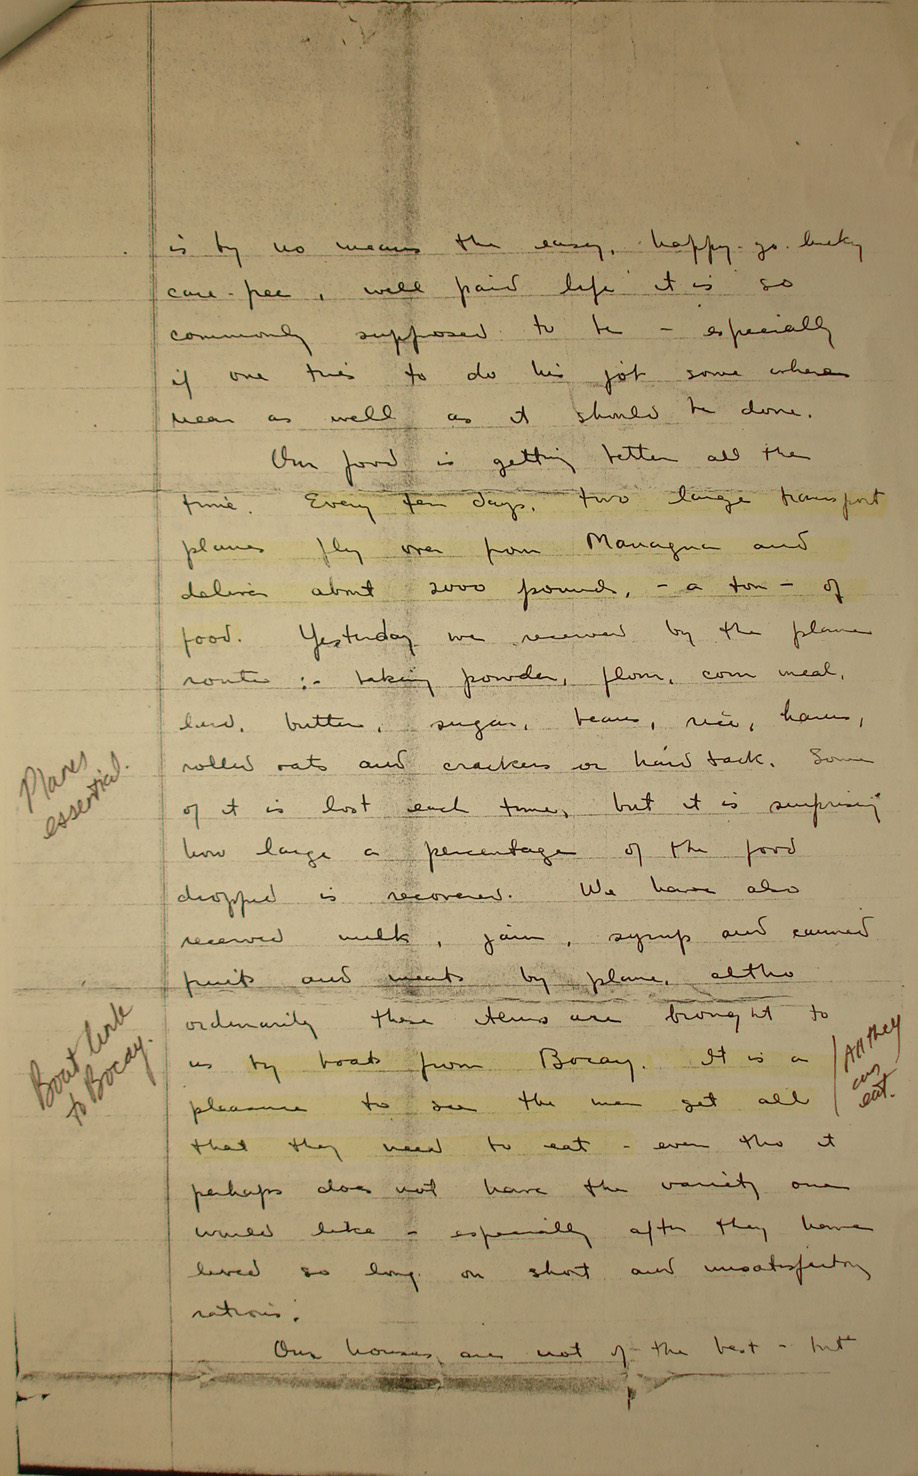 is by no means the easy, happy-go-lucky
care-free, well paid life it is so
commonly supposed to be - especially
if one tries to do his job some where
near as well as it should be done.
Our food is getting better all the
time. Every ten days, two large transport
planes fly over from Managua and
deliver about 2000 pounds, - a ton - of
food. Yesterday we received by the plane
route :- baking powder, flour, corn meal,
lard, butter, sugar, beans, rice, hams,
rolled oats and crackers or hard tack. Some
of it is lost each time, but it is surprising
how large a percentage of the food
dropped is recovered. We have also
received milk, jam, syrup and canned
fruits and meats by plane, altho
ordinarily these items are brought to
us by boats from Bocay. It is a
pleasure to see the men get all
that they need to eat - even tho it
perhaps does not have the variety one
would like - especially after they have
lived so long on short and unsatisfactory
rations.
Our houses are not of the best - but
Planes
essential.
Boat link
to Bocay.
All they
can
eat.